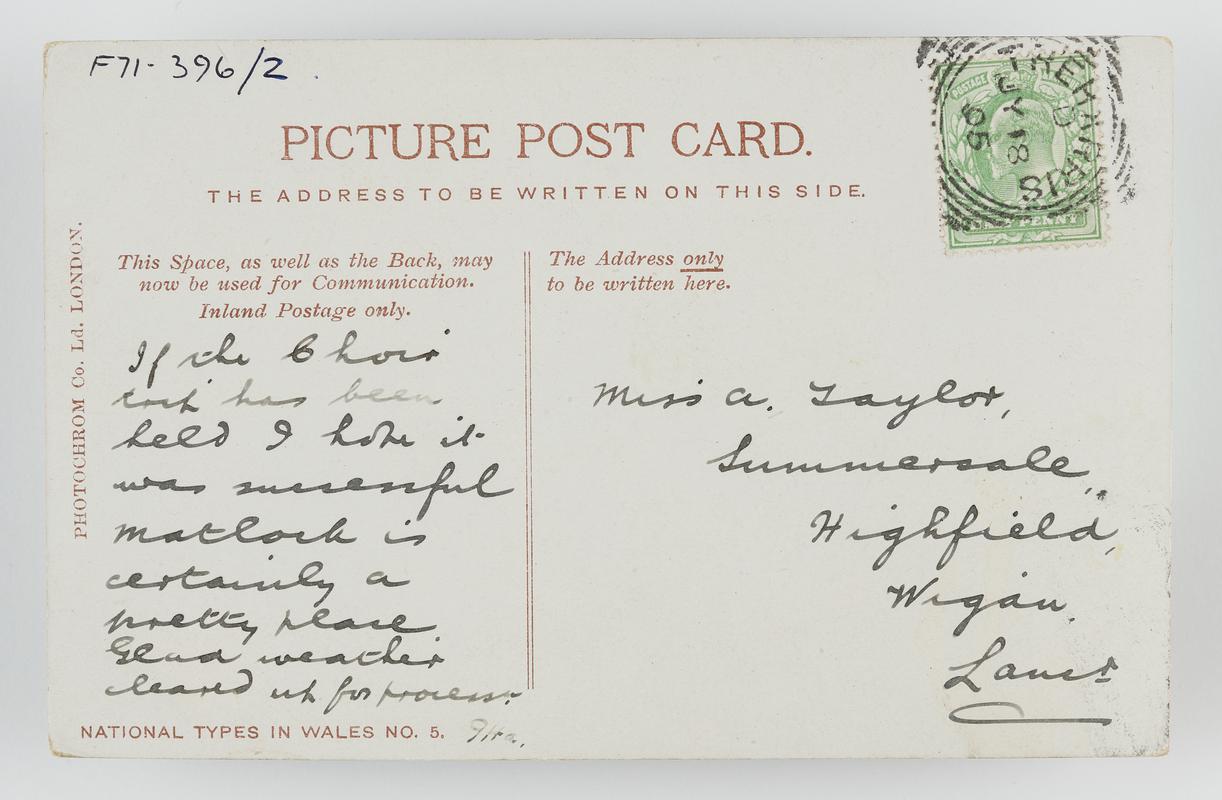 F71-396/2.
PICTURE POST CARD.
THE ADDRESS TO BE WRITTEN ON THIS SIDE.
TREHARRIS
D
JY 18
05
POSTAGE
PENNY
PHOTOCHROM Co. Ld. LONDON.
This Space, as well as the Back, may
now be used for Communication.
Inland Postage only.
The Address only
to be written here.
If the Choir
has been
held I hope it
was successful
Matlock is
certainly a
pretty place
Glad weather
cleared up for process:
Miss A. Taylor,
Summersale,
Highfield,
Wigan,
Lancs
NATIONAL TYPES IN WALES NO. 5.